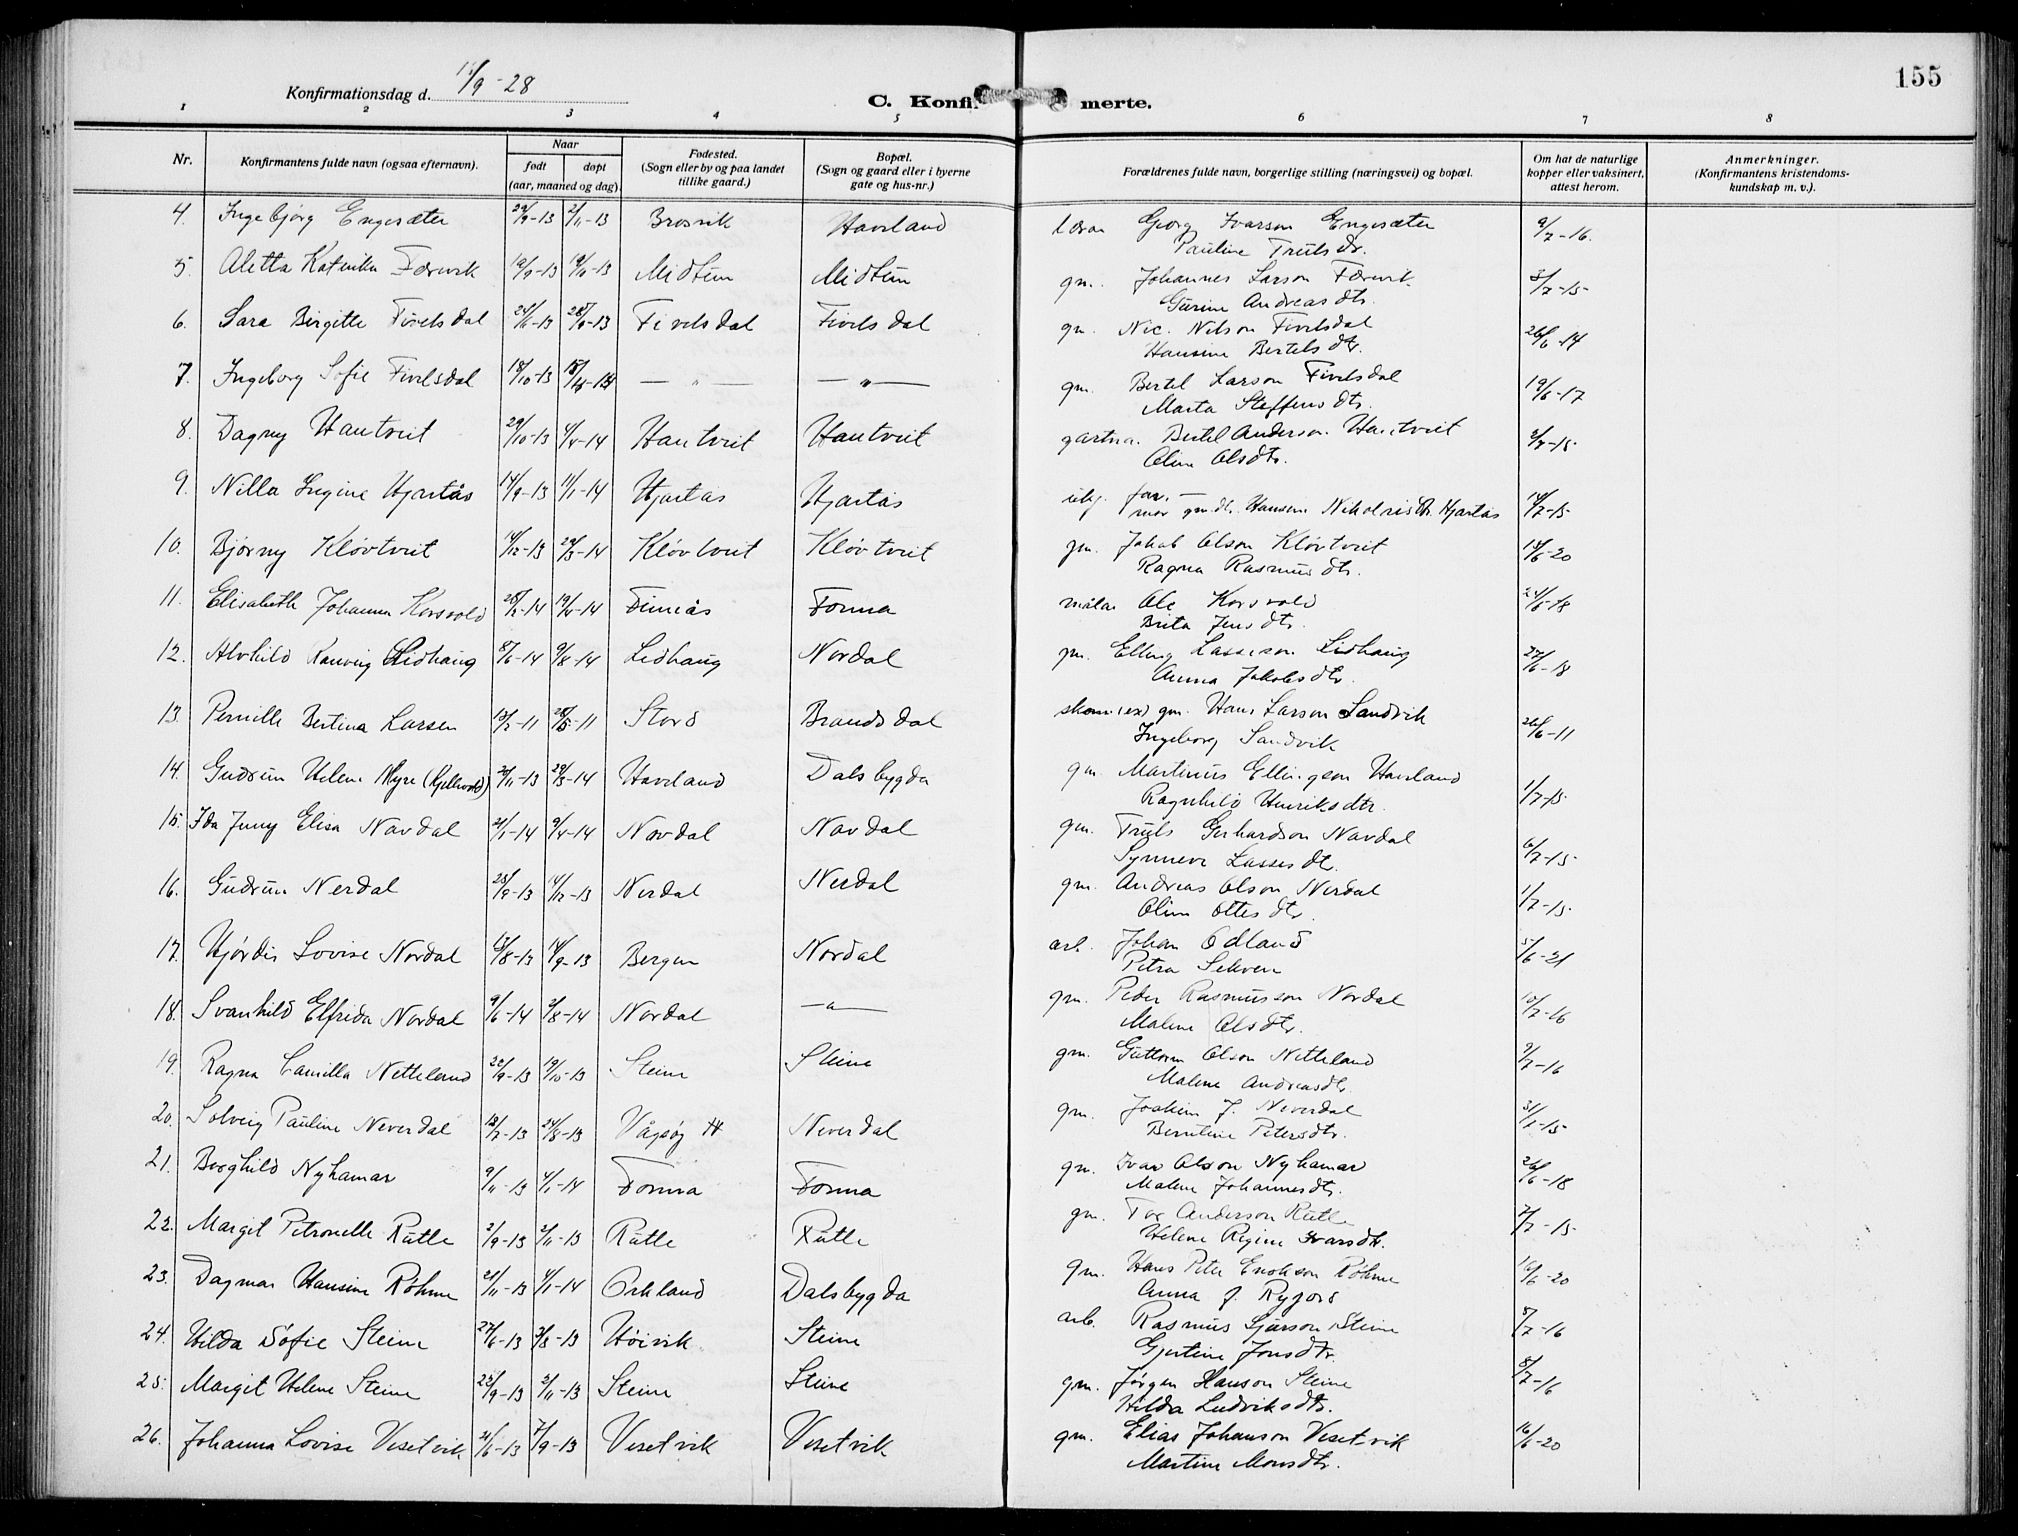 155
Konfirmationsdag d. /9-28
C. Konfirmerte.
1 2 3 4 5 6 7 8
Nr. Konfirmantens fulde navn (ogsaa efternavn). Naar født døpt (aar, maaned og dag) Fødested. (Sogn eller by og paa landet tillike gaard.) Bopæl. (Sogn og gaard eller i byerne gate og hus-nr.) Forældrenes fulde navn, borgerlige stilling (næringsvei) og bopæl. Om hat de naturlige kopper eller vaksinert, attest herom. Anmerkninger. (Konfirmantens kristendomskundskap m. v.).
4. Ingebjørg Engesæter 29/9-13 2/11-13 Brosvik Haveland lærar Georg Ivarson Engesæter 9/7-16.
Pauline Trulsdr.
5. Aletta Katinka Færevik 19/9-13 Midtun Midtun gm. Johannes Larson Færevik 3/7-15
Gurine Andreasdtr.
6. Sara Birgitte Fivelsdal 24/6-13 Fivelsdal Fivelsdal gm. Nic. Nilson Fivelsdal 26/6-14
Hansine Bertelsdtr.
7. Ingeborg Sofie Fivelsdal 18/10-13 — " — — " — gm. Bertel Larson Fivelsdal 19/6-17
Marta Steffensdtr.
8. Dagny Hantveit 29/10-13 Hantveit Hantveit gartnar Bertel Anderson Hantveit
Oline Olsdtr.
9. Nilla Ingine Hjartås 14/9-13 11/1-14 Hjartås Hjartås far. —
mor gm.dt. Hansine Nikolaisdtr. Hjartås
10. Bjørny Kløvtveit 14/12-13 Kløvtveit Kløvtveit gm. Jakob Olson Kløvtveit 15/6-20
Ragna Rasmusdtr.
11. Elisabeth Johanna Korsvold Fonna målar Ole Korsvold 24/6-18
Brita Jensdtr.
12. Alvhild Ranveig Lidhaug 8/6-14 9/8-14 Lidhaug Nordal gm. Elling Lasseson Lidhaug 27/6-18
Anna Jakobsdtr.
13. Pernille Bertina Larsen Stord Brandsdal gm. Hans Larson Sandvik 26/6-11
Ingeborg Sandvik
14. Gudrun Helene Myre (Kjellevold) 29/3-14 Haveland Dalsbygda gm. Martinus Ellingson Haveland 1/7-15
Ragnhild Henriksdtr.
15. Ida Jenny Elisa Navdal 21/1-14 9/4-14 Navdal Navdal gm. Truls Gerhardson Navdal 6/7-15
Synneve Lassesdtr.
16. Gudrun Nerdal 28/9-13 14/12-13 Nerdal Nerdal gm. Andreas Olson Nerdal 1/7-15
Oline Ottesdtr.
17. Hjørdis Lovise Nordal 13/8-13 14/9-13 Bergen Nordal arb. Johan Odland 5/6-21
Petra
18. Svanhild Elfrida Nordal 9/6-14 2/8-14 Nordal — " — gm. Peder Rasmusson Nordal 10/7-16
Malene Olsdtr.
19. Ragna Camilla Netteland 22/9-13 19/10-13 Steine Steine gm. Guttorm Olson Netteland 9/7-16
Malene Andreasdtr.
20. Solveig Pauline Neverdal 18/7-13 24/8-13 Vågsøy Neverdal gm. Joakim J. Neverdal
Berntine Petersdtr.
21. Borghild Nyhamar 9/11-13 4/1-14 Fonna Fonna gm. Ivar Olson Nyhamar 26/6-18
Malene Johannesdtr.
22. Margit Petronelle Rutle 2/9-13 2/11-13 Rutle Rutle gm. Tor Anderson Rutle 2/7-15
Helene Regine Ivarsdtr.
23. Dagmar Hansine Røhme 21/11-13 4/1-14 Ørkland Dalsbygda gm. Hans Peter Enokson Røhme 16/6-20
Anna J. Rygord
24. Hilda Sofie Steine 27/6-13 3/8-13 Høivik Steine arb. Rasmus Sjurson Steine 8/7-16
Gjertine Jonsdtr.
25. Margit Helene Steine 23/9-13 2/11-13 Steine Steine gm. Jørgen Hanson Steine 8/7-16
Hilda Ludviksdtr.
26. Johanna Lovise Vesetvik 21/6-13 7/9-13 Vesetvik Vesetvik gm. Elias Johanson Vesetvik 16/6-20
Martine Monsdtr.